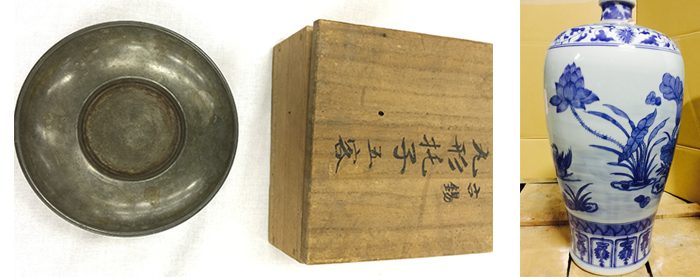 古錫
丸形托子五客